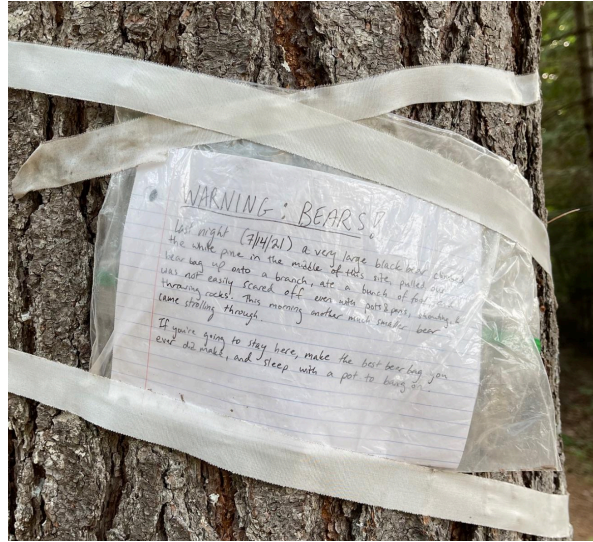 WARNING: BEARS!
Last night (7/14/21) a very large black bear climbed
the white pine in the middle of this site, pulled our
bear bag up onto a branch, ate a bunch of food
was not easily scared off even with pots & pans, shouting &
throwing rocks. This morning another much smaller bear
came strolling through.
If you're going to stay here, make the best bear bag you
ever did make, and sleep with a pot to bang on.